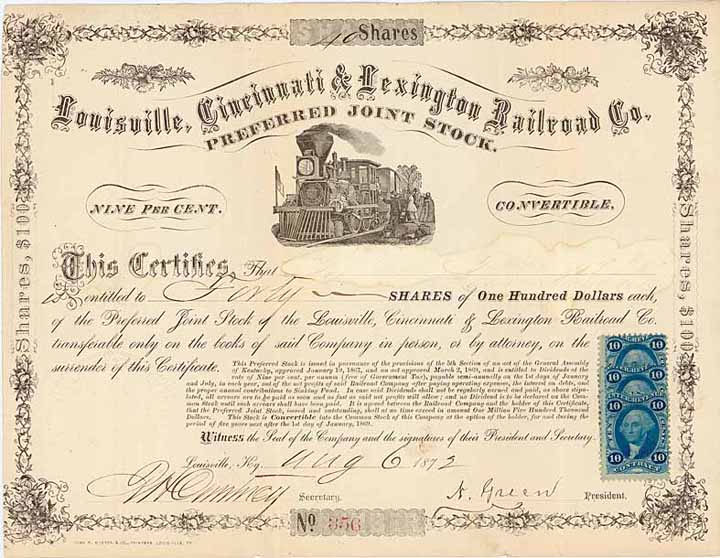 40 Shares
Louisville, Cincinnati & Lexington Railroad Co.
PREFERRED JOINT STOCK.
NINE PER CENT.
CONVERTIBLE,
Shares, $100
Shares, $100
This Certifies, That
is entitled to Forty SHARES of One Hundred Dollars each,
of the Preferred Joint Stock of the Louisville, Cincinnati & Lexington Railroad Co.
transferable only on the books of said Company in person, or by attorney, on the
surrender of this Certificate.
This Preferred Stock is issued in pursuance of the provisions of the 5th Section of an act of the General Assembly
of Kentucky, approved January 19, 1867, and an act approved March 2, 1869, and is entitled to Dividends at the
rate of Nine per cent, per annum (free of Government Tax), payable semi-annually on the 1st day of January
and July, in each year, out of the net profits of said Railroad Company after paying operating expenses, the interest on debts, and
the proper annual contributions to Sinking Fund. In case said Dividends shall not be regularly earned and paid, as above stipu-
lated, all arrears are to be paid as soon and as fast as said net profits will allow; and no Dividend is to be declared on the Com-
mon Stock until such arrears shall have been paid. It is agreed between the Railroad Company and the holder of this Certificate,
that the Preferred Joint Stock, issued and outstanding, shall at no time exceed in amount One Million Five Hundred Thousand
Dollars. This Stock is Convertible into the Common Stock of this Company at the option of the holder, for and during the
period of five years next after the 1st day of January, 1869.
Witness the Seal of the Company and the signatures of their President and Secretary.
Louisville, Ky. Aug 6 1872
Secretary.
N. Green President.
No 356
INTER. REVENUE
10 10
CONTRACT